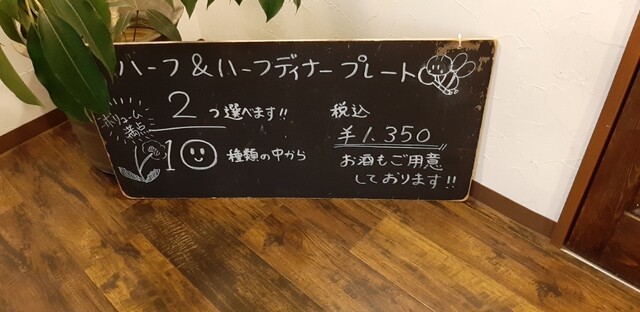 ハーフ&ハーフディナープレート
ボリューム
満点
2つ選べます!!
10種類の中から
税込
¥1.350
お酒もご用意
しております!!